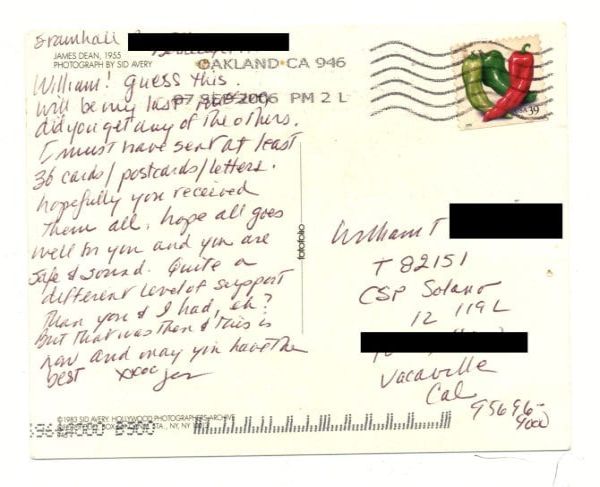 Bramhall
JAMES DEAN, 1955
PHOTOGRAPH BY SID AVERY
OAKLAND CA 946
07 SEP 2006 PM 2 L
USA 39
William! guess this
will be my last
did you get any of the others.
I must have sent at least
36 cards/postcards/letters.
hopefully you received
them all. hope all goes
well for you and you are
safe & sound. Quite a
different level of support
than you & I had, eh?
But that was then & this is
now and may you have the
best xxoo Jer
fotofolio
William T
T 82151
CSP Solano
12 119L
Vacaville
Cal
95696-
4000
©1983 SID AVERY, HOLLYWOOD PHOTOGRAPHERS ARCHIVE
BOX STA., NY, NY